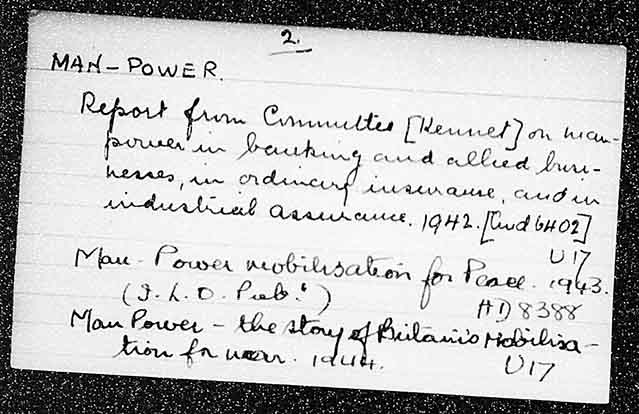 2.
MAN-POWER.
Report from Committee [Kennet] on man-
power in banking and allied busi-
nesses, in ordinary insurance, and in
industrial assurance. 1942. [Cmd 6402]
U17
Man-Power mobilisation for Peace. 1943.
(I.L.O. Pub.) HD8388
Man Power - the story of Britain's Mobilisa-
tion for war. 1944. U17